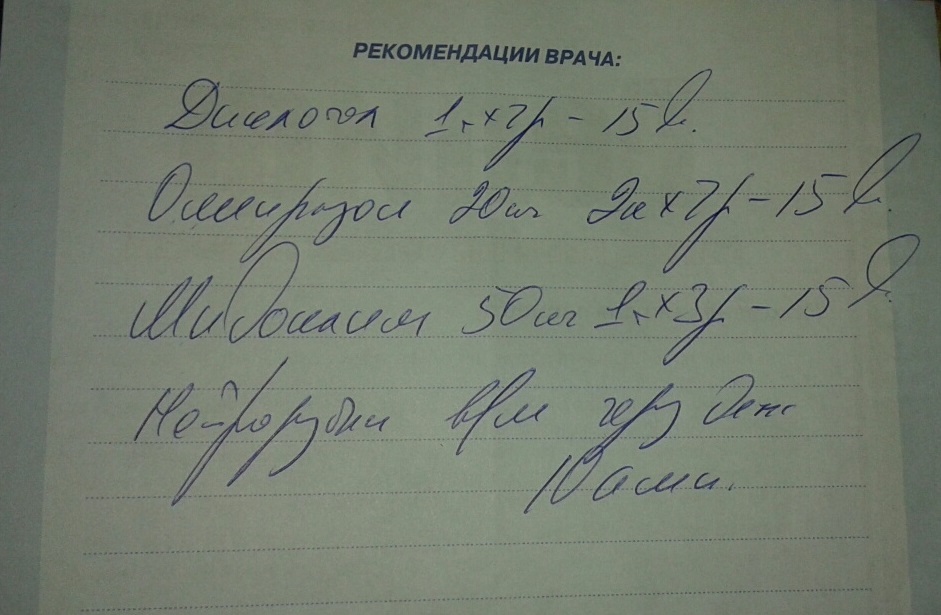 РЕКОМЕНДАЦИИ ВРАЧА:
Диклоген 1т х 2р - 15 д.
Омепразол 20мг 2к х 2р - 15 д.
Мидокалм 50мг 1т х 3р - 15 д.
Нейрорубин в/м через день
10 амп.